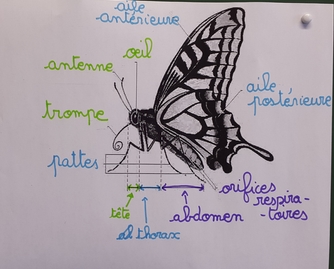 aile
antérieure
oeil
antenne
aile
postérieure
trompe
pattes
orifices
respira-
-toires
tête
abdomen
thorax